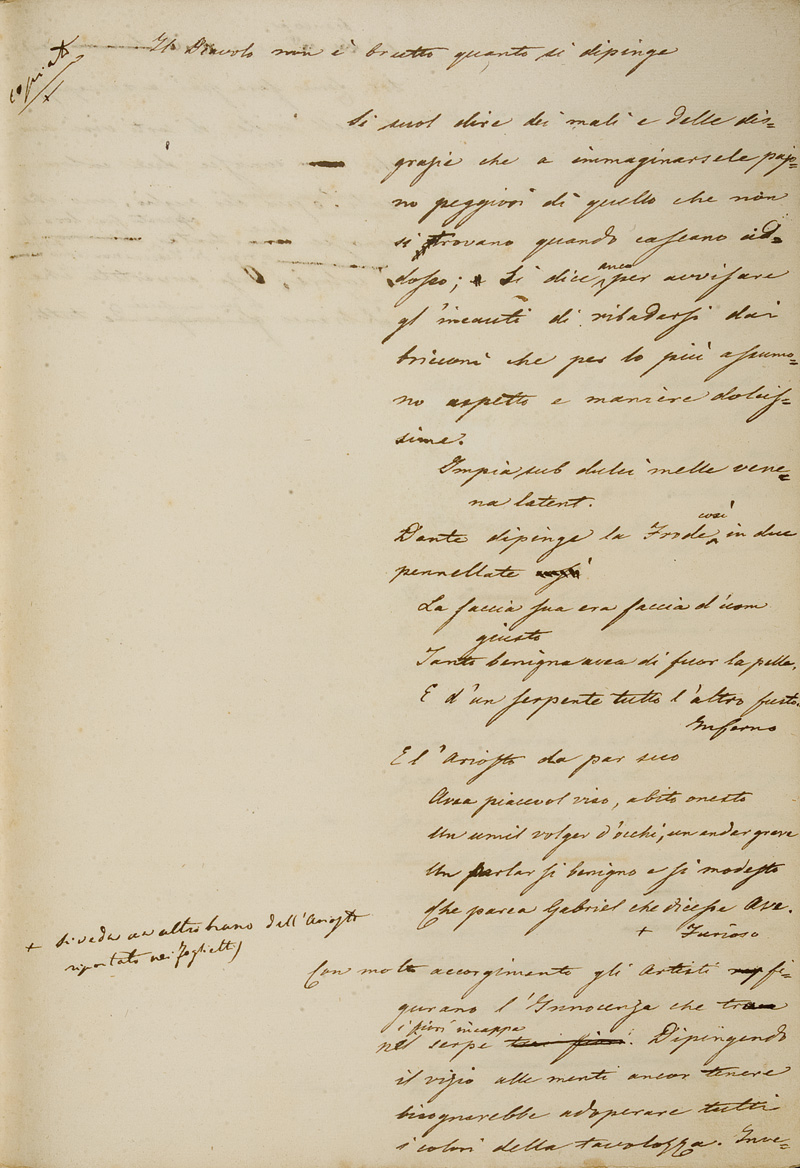 copiato
Il Diavolo non è brutto quanto si dipinge
Si suol dire dei mali e delle dis=
grazie che a immaginarsele paj=
no peggiori di quello che non
si trovano quando cascano ad=
dosso; Si dice anco per avvisare
gl'incauti di ribadarsi dai
bricconi che per lo più assumo=
no aspetto e maniere dolcis=
sime.
Impia sub dulci melle vene=
na latent.
Dante dipinge la Frode così in due
pennellate
La faccia sua era faccia d'uom
giusto
Tanto benigna avea di fuor la pelle,
E d'un serpente tutto l'altro fusto.
Inferno
E l'Ariosto da par suo
Avea piacevol viso, abito onesto
Un umil volger d'occhi, un andar grave
Un parlar sì benigno e sì modesto
Che parea Gabriel che dicesse Ave.
+ Furioso
+ si veda un altro brano dell'Ariosto
riportato nei foglietti
Con molto accorgimento gli Artisti raffi=
gurano l'Innocenza che tra
i fiori incappa
nel serpe tra i fiori. Dipingendo
il vizio alle menti ancor tenere
bisognarebbe adoperare tutti
i colori della tavolozza. Inve=